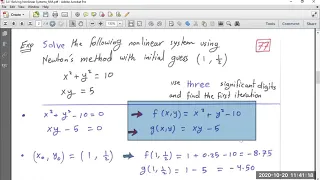 Solving Nonlinear Systems - Adobe Acrobat Pro
Exp Solve the following nonlinear system using 77
Newton's method with initial guess (1, 1/2)
x² + y² = 10
xy = 5
use three significant digits
and find the first iteration
• x² + y² - 10 = 0 → f(x,y) = x² + y² - 10
xy - 5 = 0 → g(x,y) = xy - 5
• (x₀, y₀) = (1, 1/2) → f(1, 1/2) = 1 + 0.25 - 10 = -8.75
g(1, 1/2) = 1 - 5 = -4.50
2020-10-20 11:41:18